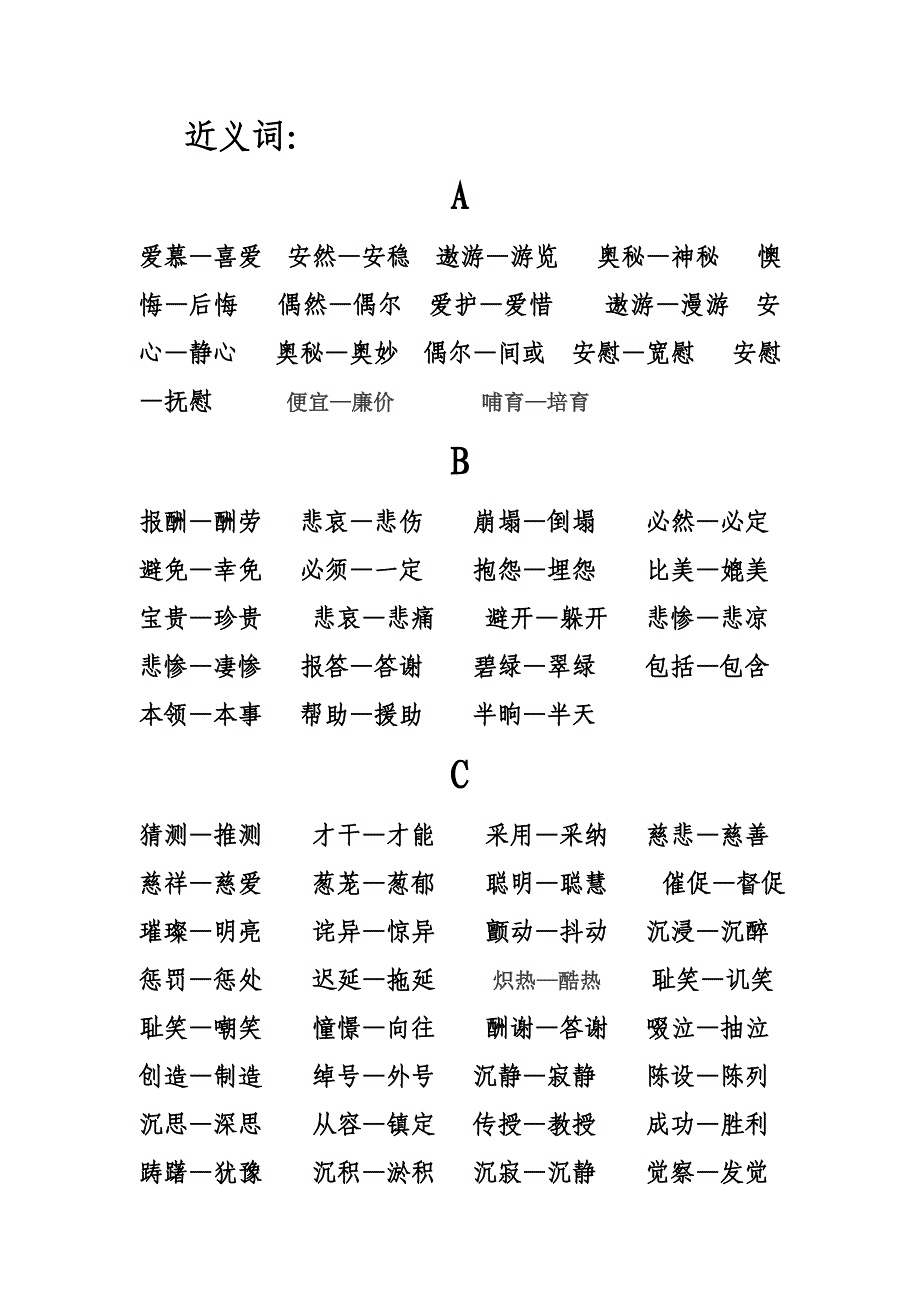 近义词：
A
爱慕—喜爱 安然—安稳 遨游—游览 奥秘—神秘 懊
悔—后悔 偶然—偶尔 爱护—爱惜 遨游—漫游 安
心—静心 奥秘—奥妙 偶尔—间或 安慰—宽慰 安慰
—抚慰 便宜—廉价 哺育—培育
B
报酬—酬劳 悲哀—悲伤 崩塌—倒塌 必然—必定
避免—幸免 必须—一定 抱怨—埋怨 比美—媲美
宝贵—珍贵 悲哀—悲痛 避开—躲开 悲惨—悲凉
悲惨—凄惨 报答—答谢 碧绿—翠绿 包括—包含
本领—本事 帮助—援助 半晌—半天
C
猜测—推测 才干—才能 采用—采纳 慈悲—慈善
慈祥—慈爱 葱茏—葱郁 聪明—聪慧 催促—督促
璀璨—明亮 诧异—惊异 颤动—抖动 沉浸—沉醉
惩罚—惩处 迟延—拖延 炽热—酷热 耻笑—讥笑
耻笑—嘲笑 憧憬—向往 酬谢—答谢 啜泣—抽泣
创造—制造 绰号—外号 沉静—寂静 陈设—陈列
沉思—深思 从容—镇定 传授—教授 成功—胜利
踌躇—犹豫 沉积—淤积 沉寂—沉静 觉察—发觉